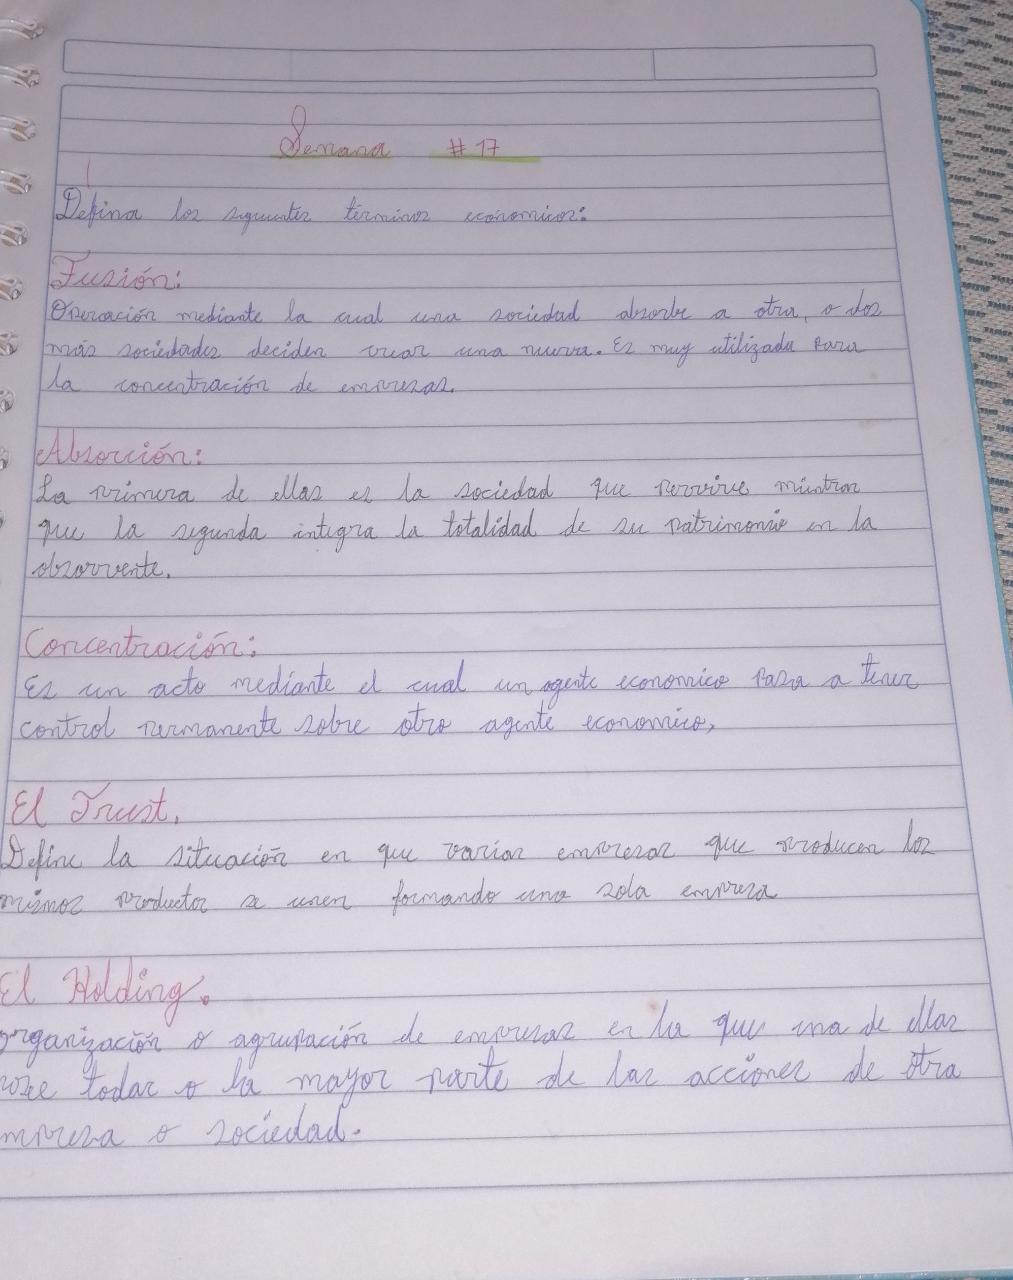 Semana # 17
Defina los siguientes términos economicos:
Fusión:
Operación mediante la cual una sociedad absorbe a otra, o dos
más sociedades deciden crear una nueva. Es muy utilizada para
la concentración de empresas.
Absorción:
La primera de ellas es la sociedad que pervive mientras
que la segunda integra la totalidad de su patrimonio en la
obsorvente.
Concentración:
Es un acto mediante el cual un agente economico pasa a tener
control permanente sobre otro agente economico,
El Trust.
Define la situación en que varias empresas que producen los
mismos productos se unen formando una sola empresa
El Holding.
organización o agrupación de empresas en la que una de ellas
posee todas o la mayor parte de las acciones de otra
empresa o sociedad.